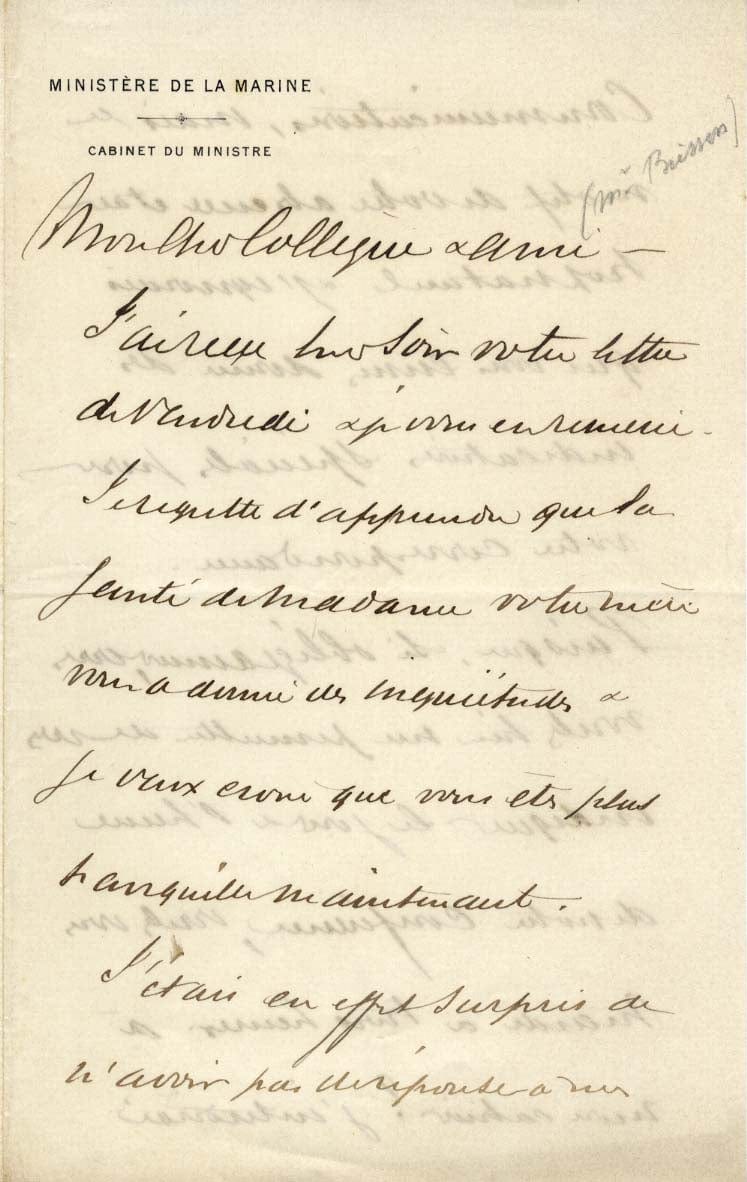 MINISTÈRE DE LA MARINE
CABINET DU MINISTRE
(Mr Buisson)
Mon cher Collègue & ami —
J'ai reçu hier soir votre lettre
de Vendredi & je vous en remercie.
Je regrette d'apprendre que la
santé de Madame votre mère
vous a donné des inquiétudes &
je veux croire que vous êtes plus
tranquille maintenant.
J'étais en effet surpris de
n'avoir pas de réponse à mes